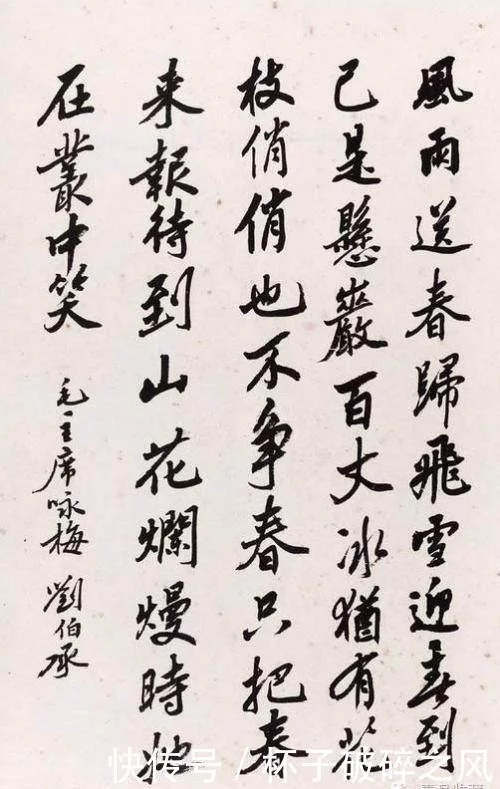 風雨送春歸飛雪迎春到
已是懸巖百丈冰猶有花
枝俏俏也不争春只把春
来報待到山花爛熳時她
在叢中笑
毛主席咏梅 劉伯承
快传号 / 杯子破碎之风